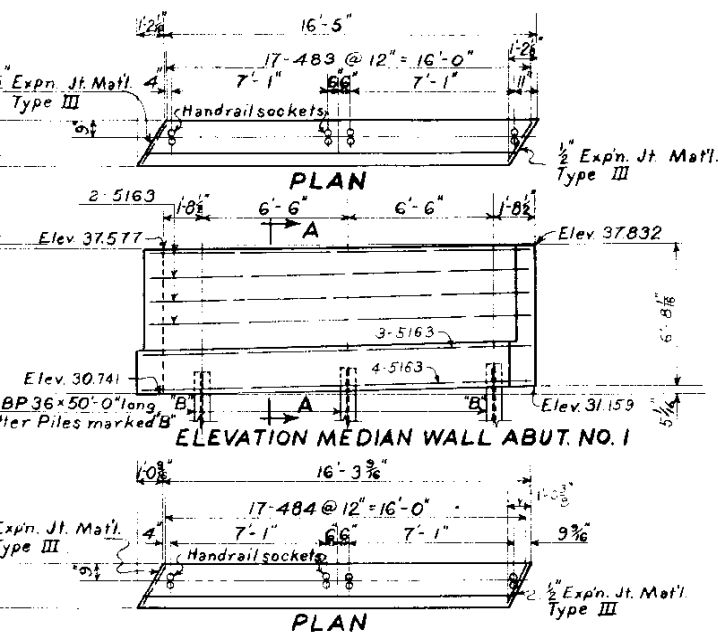 16'-5"
17-483 @ 12" = 16'-0"
Exp'n. Jt. Mat'l.
Type III
4"
7'-1"
6" 6"
7'-1"
11"
Handrail sockets
9"
1/2" Exp'n. Jt. Mat'l.
Type III
PLAN
2-5163
1'-8 1/2"
6'-6"
6'-6"
1'-8 1/2"
A
Elev. 37.577
Elev. 37.832
6'-8 1/16"
3-5163
4-5163
Elev. 30.741
BP 36 x 50'-0" long
Piles marked "B"
"B"
A
"B"
Elev. 31.159
ELEVATION MEDIAN WALL ABUT. NO. 1
16'-3 9/16"
17-484 @ 12" = 16'-0"
Exp'n. Jt. Mat'l.
Type III
4"
7'-1"
6" 6"
7'-1"
9 9/16"
Handrail sockets
9"
1/2" Exp'n. Jt. Mat'l.
Type III
PLAN